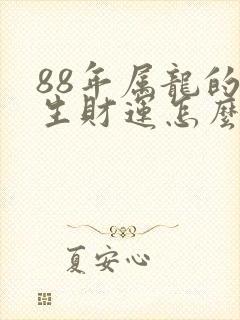 88年属龍的
生財運怎麼
夏安心